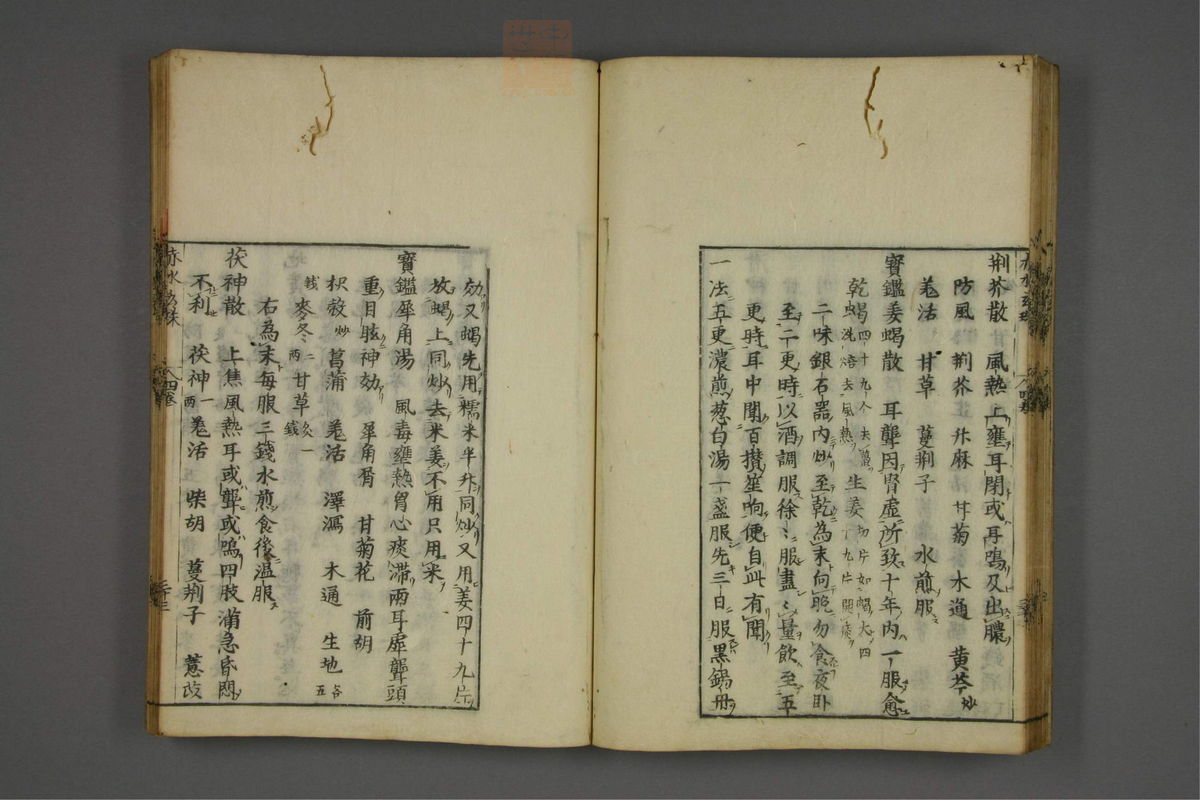 荆芥散　風熱上壅耳閉或耳鳴及出膿
防風　荆芥　升麻　甘菊　木通　黄芩炒
羗活　甘草　蔓荆子　水煎服
寶鑑姜蝎散　耳聾因腎虚所致十年内一服愈
乾蝎四十九个去蠆洗焙去風熱　生姜切片如蝎大四十九片開痰
二味銀石器内炒至乾為末向晚勿食夜卧
至二更時以酒調服徐〻服盡〻量飲至五
更時耳中聞百攅笙响便自此有聞
一法五更濃煎葱白湯一盞服先三日服黒錫丹
効又蝎先用糯米半升同炒又用姜四十九片
放蝎上同炒去米姜不用只用米
寶鑑犀角湯　風毒壅熱胃心痰滞兩耳虚聾頭
重目眩神効　犀角屑　甘菊花　前胡
枳殼炒　菖蒲　羗活　澤瀉　木通　生地各五
錢　麥冬二兩　甘草炙一錢
右為末毎服三錢水煎食後温服
茯神散　上焦風熱耳或聾或鳴四肢滿急昏悶
不利　茯神一兩　羗活　柴胡　蔓荆子　薏苡
赤水玄珠　八四卷